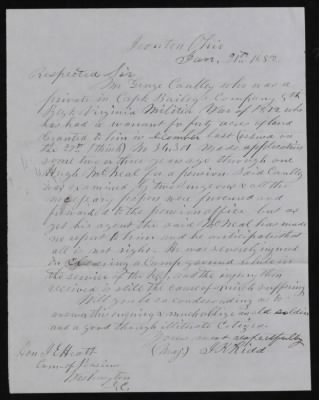 Ironton Ohio
Jan. 21st 1852
Respected Sir
Mr George Caulley who was a
private in Capt Bailey's Company 5th
Regt Virginia Militia War of 1812 who
has had a warrant for forty acres of land
granted to him in December last issued on
the 29th (I think) No 36301 made application
some two or three years through one
Hugh McNeal for a pension Said Caulley
was examined by two Surgeons & all the
necessary papers were procured and
forwarded to the pension office but as
yet his agent the said McNeal has made
no report to him and he anticipates that
all is not right. He was severely injured
in clearing a Camp ground while in
the service of the Regt. and the injury then
received is still the cause of much suffering
Will you be so condescending as to
answer this enquiry & much oblige an old soldier
and a good though illiterate Citizen.
Yours most respectfully
(Maj) J K Kidd
Hon J E Heath
Com of Pensions
Washington
D.C.